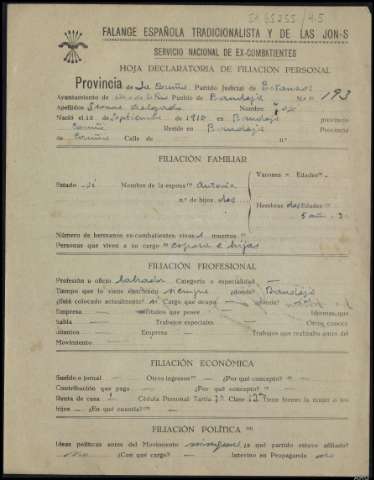 SA 65255/45
FALANGE ESPAÑOLA TRADICIONALISTA Y DE LAS JON-S
SERVICIO NACIONAL DE EX-COMBATIENTES
HOJA DECLARATORIA DE FILIACION PERSONAL
Provincia de La Coruña Partido Judicial de Betanzos
Ayuntamiento de Pueblo de Bandoja N.º 193
Apellidos Nombre
Nació el 12 de Septiembre de 1910 en Bandoja provincia
Coruña Reside en Bandoja Provincia
de Coruña Calle de n.º
FILIACIÓN FAMILIAR
Varones — Edades —
Estado Nombre de la esposa Antonia
n.º de hijos dos
Hembras dos Edades
5 años
Número de hermanos ex-combatientes vivos muertos
Personas que viven a su cargo esposa e hijas
FILIACIÓN PROFESIONAL
Profesión u oficio labrador Categoría o especialidad
Tiempo que lo viene ejerciendo siempre donde Bandoja
¿Está colocado actualmente? si Cargo que ocupa ¿dónde?
Empresa — Títulos que posee — Idiomas que
habla — Trabajos especiales Otros conoci-
mientos — Empresa — Trabajos que realizaba antes del
Movimiento —
FILIACIÓN ECONÓMICA
Sueldo o jornal — Otros ingresos — ¿Por qué concepto? —
Contribución que paga — ¿Por qué concepto? —
Renta de casa Cédula Personal Tarifa Clase Tiene bienes la mujer o los
hijos — ¿En qué cuantía? —
FILIACIÓN POLÍTICA
Ideas políticas antes del Movimiento ninguna ¿a qué partido estuvo afiliado?
no ¿Con qué cargo? — Intervino en Propaganda no